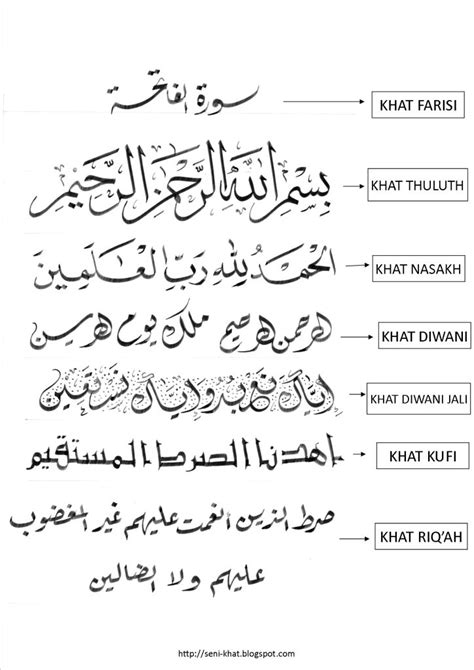 سورة الفاتحة
KHAT FARISI
بِسْمِ اللهِ الرَّحْمَنِ الرَّحِيْمِ
KHAT THULUTH
الْحَمْدُ لِلّٰهِ رَبِّ الْعَالَمِينَ
KHAT NASAKH
الرحمن الرحيم ملك يوم الدين
KHAT DIWANI
إياك نعبد وإياك نستعين
KHAT DIWANI JALI
اهدنا الصرط المستقيم
KHAT KUFI
صرط الذين انعمت عليهم غير المغضوب
KHAT RIQ'AH
عليهم ولا الضالين
http://seni-khat.blogspot.com